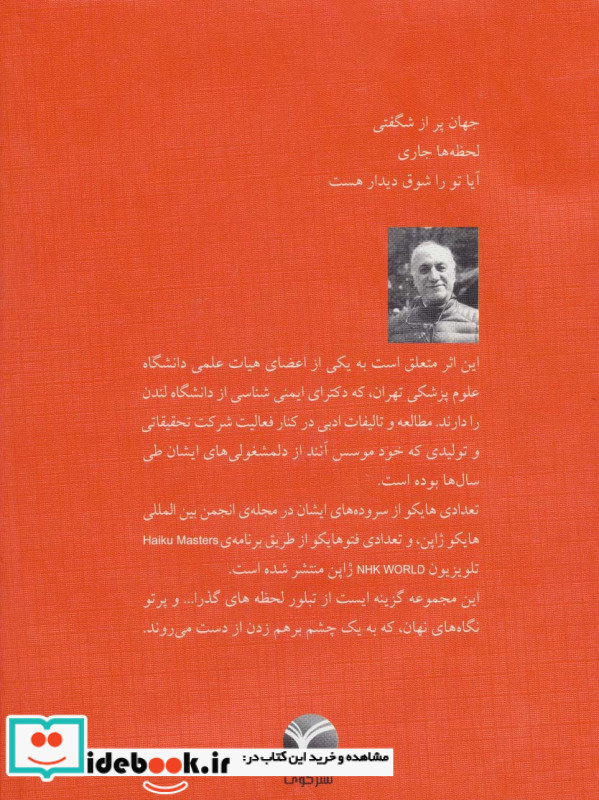 جهان پر از شگفتی
لحظه‌ها جاری
آیا تو را شوق دیدار هست
این اثر متعلق است به یکی از اعضای هیات علمی دانشگاه
علوم پزشکی تهران، که دکترای ایمنی شناسی از دانشگاه لندن
را دارند. مطالعه و تالیفات ادبی در کنار فعالیت شرکت تحقیقاتی
و تولیدی که خود موسس آنند از دلمشغولی‌های ایشان طی
سال‌ها بوده است.
تعدادی هایکو از سروده‌های ایشان در مجله‌ی انجمن بین المللی
هایکو ژاپن، و تعدادی فتوهایکو از طریق برنامه‌ی Haiku Masters
تلویزیون NHK WORLD ژاپن منتشر شده است.
این مجموعه گزینه ایست از تبلور لحظه های گذرا... و پرتو
نگاه‌های نهان، که به یک چشم برهم زدن از دست می‌روند.
مشاهده و خرید این کتاب در:
idebook.ir